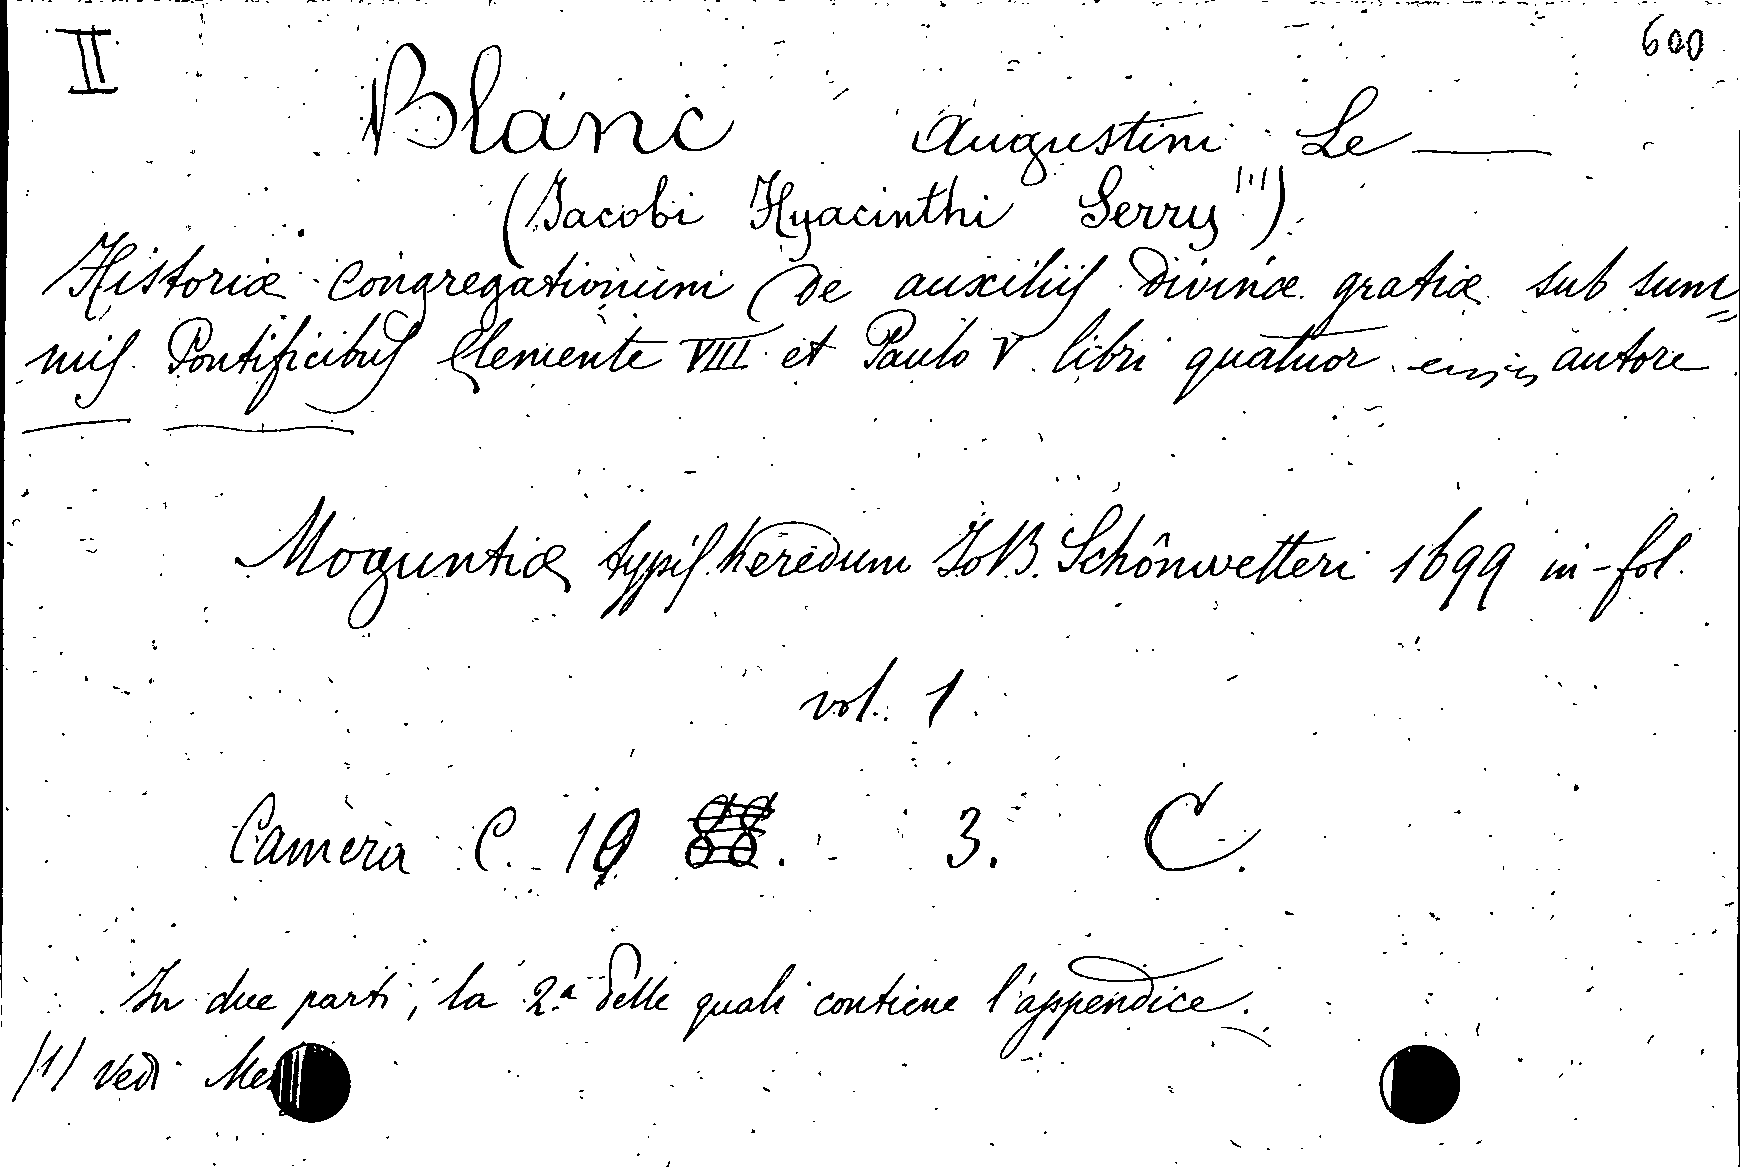 II 600
Blanc Augustini Le ——
(Jacobi Hyacinthi Serry (1))
Historiæ congregationum de auxiliis divinæ gratiæ sub sum=
mis Pontificibus Clemente VIII et Paulo V libri quatuor autore
Moguntiæ typis heredum Jo B. Schônwetteri 1699 in-fol.
vol. 1.
Camera C. 19 88. 3. C.
In due parti, la 2.a delle quali contiene l'appendice.
(1) Vedi